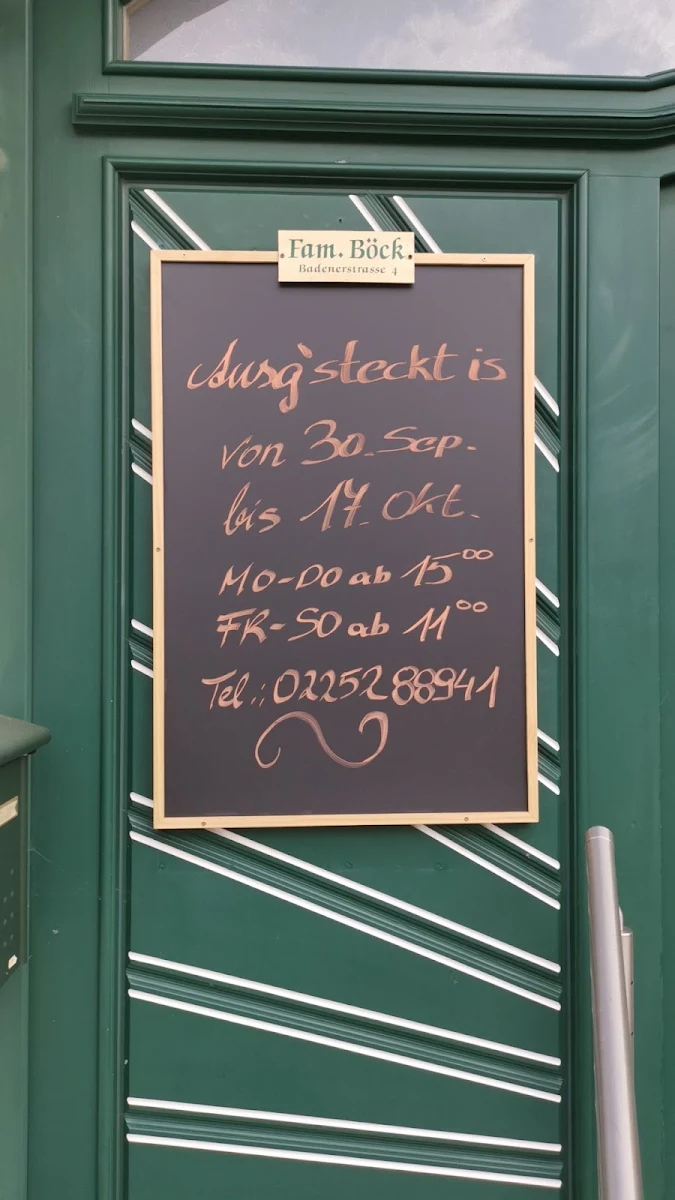 Fam. Böck
Badenerstrasse 4
Ausg'steckt is
von 30. Sep.
bis 17. Okt.
MO-DO ab 15⁰⁰
FR-SO ab 11⁰⁰
Tel.: 02252 88941